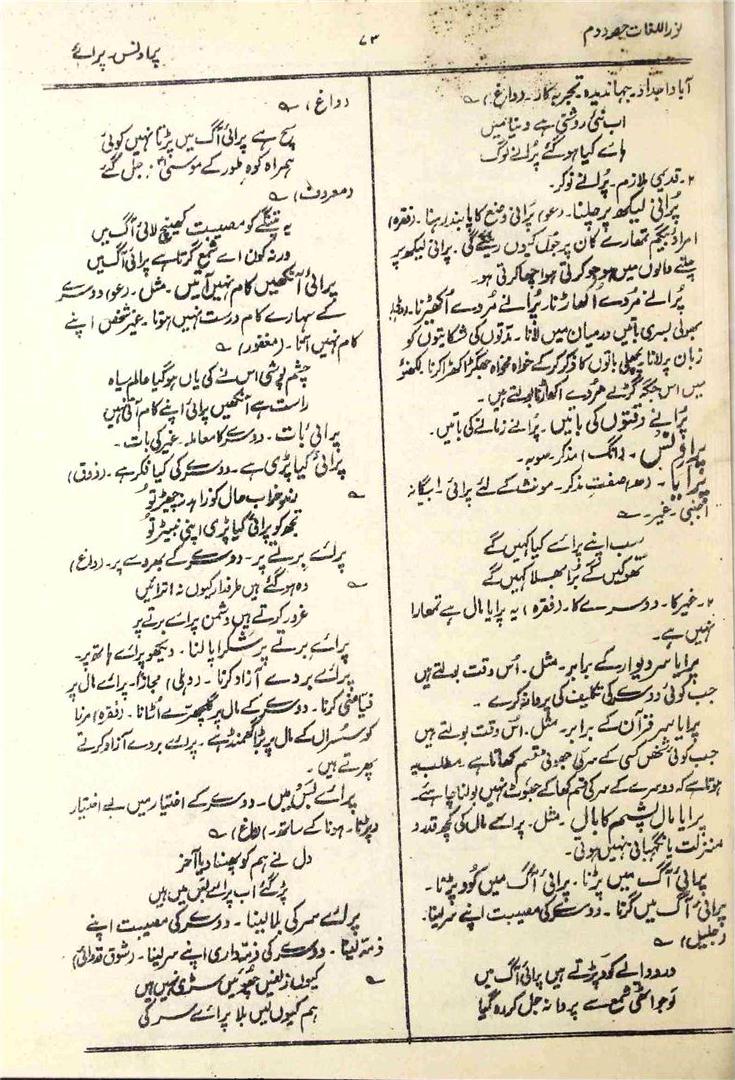 نور اللغات حصہ دوم
۷۳
پراونس۔ پرائے
آباو اجداد۔ جہاندیدہ تجربہ کار۔ (داغ) ؎
اب نئی روشنی ہے دنیا میں
ہائے کیا ہوگئے پرانے لوگ
۲۔ قدیمی ملازم۔ پرانے نوکر۔
پرانی لیکھ پر چلنا۔ (عو) پرانی وضع کا پابند رہنا۔ (فقرہ)
امراؤ بیگم تمھارے کان پر جوں کیوں رینگے گی۔ پرانی لیکھ پر
چلنے والوں میں ہو جو کرتی ہو اچھا کرتی ہو۔
پرانے مردے اکھاڑنا۔ پرانے مردے اکھیڑنا۔ (دہلی)
بھولی بسری باتیں درمیان میں لانا۔ مدتوں کی شکایتوں کو
زبان پر لانا۔ پچھلی باتوں کا ذکر کرکے خواہ مخواہ جھگڑا کھڑا کرنا۔ لکھنؤ
میں اس جگہ گڑے مردے اکھاڑنا بولتے ہیں۔
پرانے وقتوں کی باتیں۔ پرانے زمانے کی باتیں۔
پراونس۔ (انگ) مذکر۔ صوبہ۔
پرایا۔ (ھ) صفت مذکر۔ مونث کے لئے پرائی۔ ۱۔ بیگانہ
اجنبی۔ غیر۔ ؎
سب اپنے پرائے کیا کہیں گے
تھوکیں گے برا بھلا کہیں گے
۲۔ غیر کا۔ دوسرے کا۔ (فقرہ) یہ پرایا مال ہے تمھارا
نہیں ہے۔
پرایا سر دیوار کے برابر۔ مثل۔ اس وقت بولتے ہیں
جب کوئی دوسرے کی تکلیف کی پروا نہ کرے۔
پرایا سر قرآن کے برابر۔ مثل۔ اس وقت بولتے ہیں
جب کوئی شخص کسی کے سر کی جھوٹی قسم کھاتا ہے۔ مطلب یہ
ہوتا ہے کہ دوسرے کے سر کی قسم کھا کے جھوٹ نہیں بولنا چاہئے۔
پرایا مال پشم کا بال۔ مثل۔ پرائے مال کی کچھ قدر و
منزلت یا نگہبانی نہیں ہوتی۔
پرائی آگ میں پڑنا۔ پرائی آگ میں کود پڑنا۔
پرائی آگ میں گرنا۔ دوسرے کی مصیبت اپنے سر لینا۔
(جلیل) ؎
درد والے کود پڑتے ہیں پرائی آگ میں
لو جو اٹھی شمع سے پروانہ جل کر رہ گیا
(داغ) ؎
سچ ہے پرائی آگ میں پڑتا نہیں کوئی
ہمراہ کوہ طور کے موسیٰ نہ جل گئے
(معروف) ؎
یہ پتنگے کو مصیبت کھینچ لائی آگ میں
ورنہ کون اے شمع گرتا ہے پرائی آگ میں
پرائی آنکھیں کام نہیں آتیں۔ مثل۔ (عو) دوسرے
کے سہارے کام درست نہیں ہوتا۔ غیر شخص اپنے
کام نہیں آتا۔ (مغفور) ؎
چشم پوشی اس نے کی یاں ہوگیا عالم سیاہ
راست ہے آنکھیں پرائی اپنے کام آتی نہیں
پرائی بات۔ دوسرے کا معاملہ۔ غیر کی بات۔
پرائی کیا پڑی ہے۔ دوسرے کی کیا فکر ہے۔ (ذوق)
؎ رند خراب حال کو زاہد نہ چھیڑ تو
تجھ کو پرائی کیا پڑی اپنی نبیڑ تو
پرائے برتے پر۔ دوسرے کے بھروسے پر۔ (داغ)
؎ وہ ہوگئے ہیں طرفدار کیوں نہ اترائیں
غرور کرتے ہیں دشمن پرائے برتے پر
پرائے برتے پر شکرا پالنا۔ دیکھو پرائے ہاتھ پر۔
پرائے بردے آزاد کرنا۔ (دہلی) مجازاً۔ پرائے مال پر
فیاضی کرنا۔ دوسرے کے مال پر گلچھرے اڑانا۔ (فقرہ) مرزا
کو سسرال کے مال پر بڑا گھمنڈ ہے۔ پرائے بردے آزاد کرتے
پھرتے ہیں۔
پرائے بس میں۔ دوسرے کے اختیار میں بے اختیار
(پڑنا۔ ہونا کے ساتھ۔) (داغ) ؎
دل نے ہم کو پھنسا دیا آخر
پڑ گئے اب پرائے بس میں ہیں
پرائے سر کی بلا لینا۔ دوسرے کی مصیبت اپنے
ذمہ لینا۔ دوسرے کی ذمہ داری اپنے سر لینا۔ (شوق قدوائی)
؎ کیوں زلفیں چھوئیں سڑی نہیں ہیں
ہم کیوں لیں بلا پرائے سر کی